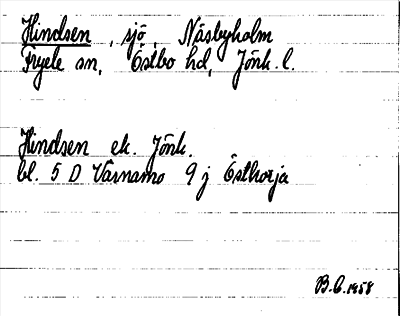 Hindsen, sjö, Näsbyholm
Fryele sn, Östbo hd, Jönk. l.
Hindsen ek. Jönk.
bl. 5 D Värnamo 9 j Östhorja
B.C. 1958